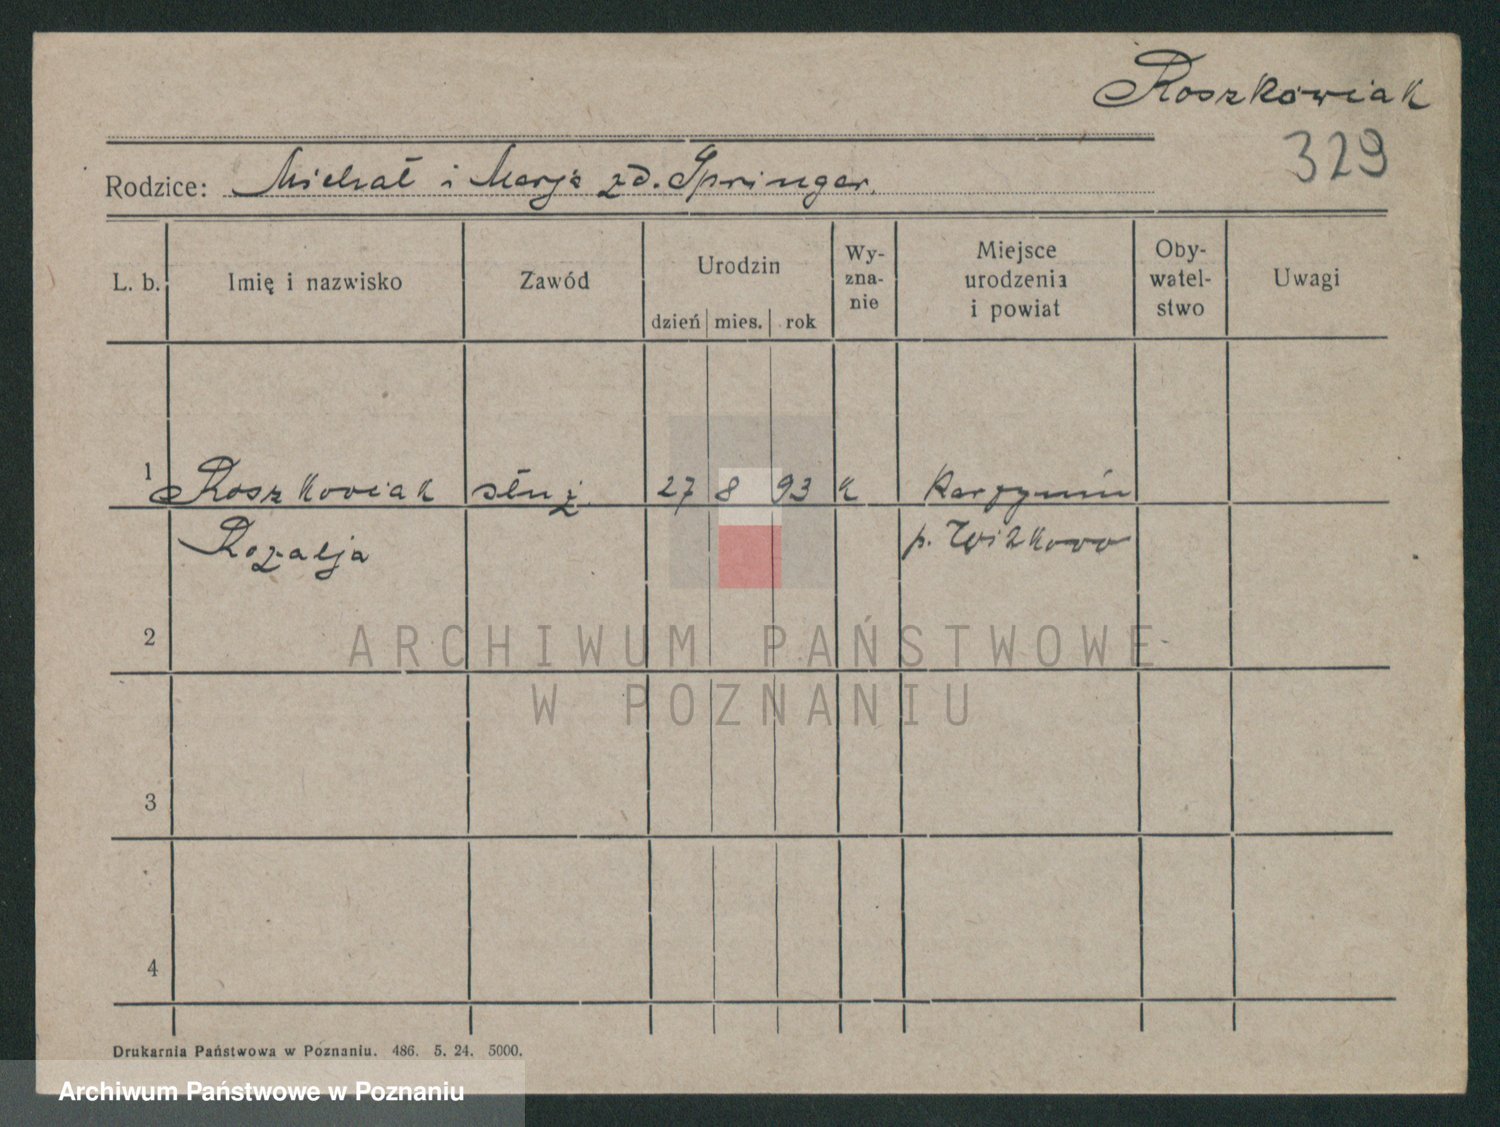 Roszkowiak
329
Rodzice: Michał i Marja zd. Springer.
L. b. Imię i nazwisko Zawód Urodzin dzień mies. rok Wy-zna-nie Miejsce urodzenia i powiat Oby-watel-stwo Uwagi
1 Roszkowiak służ. 27 8 93 k
Rozalja p.
2
ARCHIWUM PAŃSTWOWE
W POZNANIU
3
4
Drukarnia Państwowa w Poznaniu. 486. 5. 24. 5000.
Archiwum Państwowe w Poznaniu